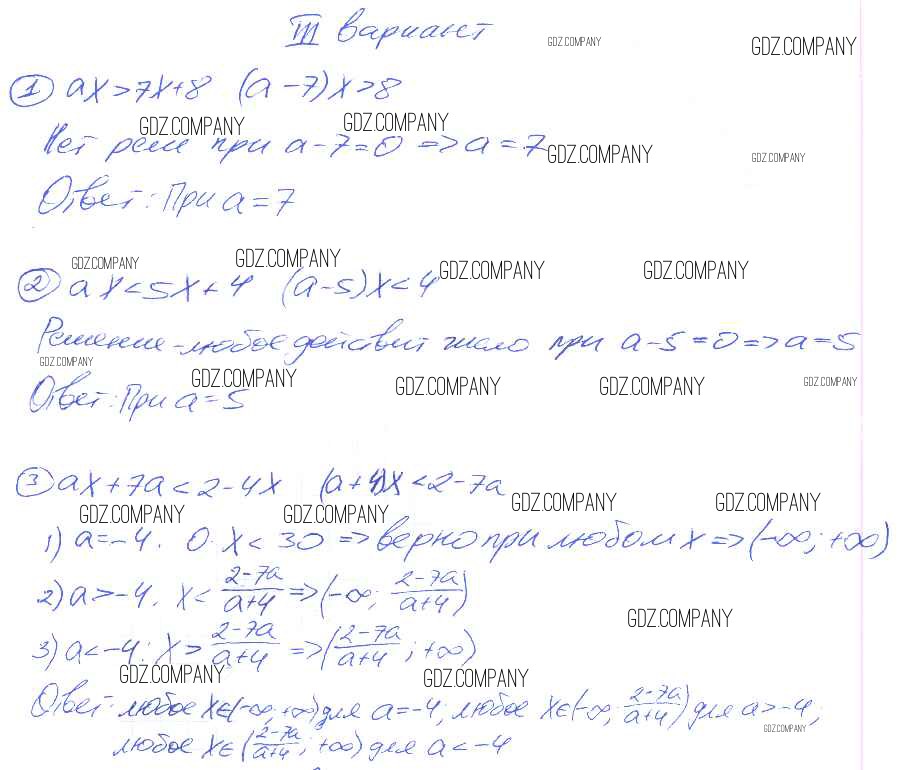 III вариант
GDZ.COMPANY GDZ.COMPANY
① ax>7x+8 (a-7)x>8
GDZ.COMPANY GDZ.COMPANY
Нет реш при a-7=0 => a=7
GDZ.COMPANY GDZ.COMPANY
Ответ: При a=7
GDZ.COMPANY GDZ.COMPANY GDZ.COMPANY GDZ.COMPANY
② ax<5x+4 (a-5)x<4
Решение - любое действит число при a-5=0 => a=5
GDZ.COMPANY GDZ.COMPANY GDZ.COMPANY GDZ.COMPANY GDZ.COMPANY
Ответ: При a=5
③ ax+7a<2-4x (a+4)x<2-7a
GDZ.COMPANY GDZ.COMPANY GDZ.COMPANY GDZ.COMPANY
1) a=-4. 0·x<30 => верно при любом x => (-∞; +∞)
2) a>-4. x< (2-7a)/(a+4) => (-∞; (2-7a)/(a+4))
GDZ.COMPANY
3) a<-4: x> (2-7a)/(a+4) => ((2-7a)/(a+4); +∞)
GDZ.COMPANY GDZ.COMPANY
Ответ: любое x∈(-∞; +∞) для a=-4; любое x∈(-∞; (2-7a)/(a+4)) для a>-4;
GDZ.COMPANY
любое x∈((2-7a)/(a+4); +∞) для a<-4